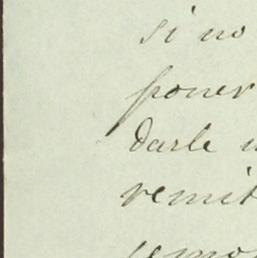 si no
poner
darle
remit